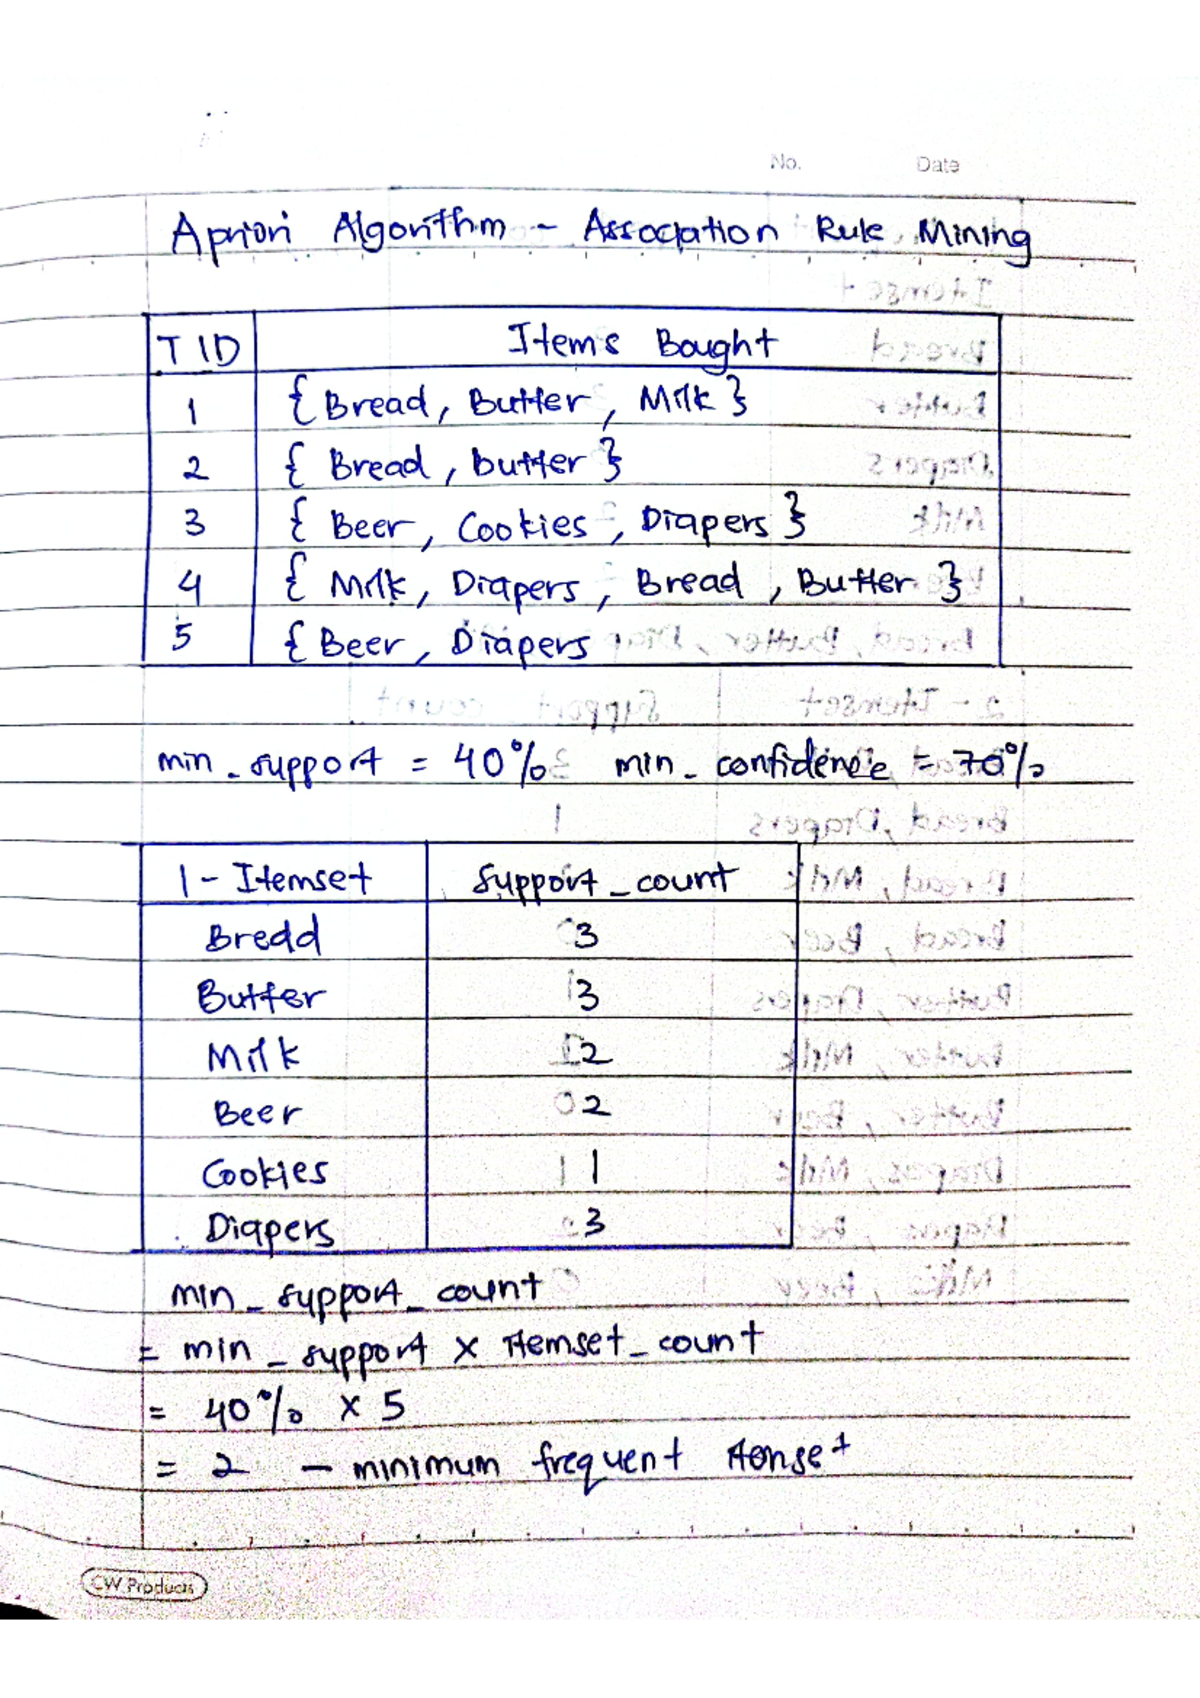 No. Date
Apriori Algorithm - Association Rule Mining
TID Items Bought
1 { Bread, Butter, Milk }
2 { Bread, butter }
3 { Beer, Cookies, Diapers }
4 { Milk, Diapers, Bread, Butter }
5 { Beer, Diapers
min_support = 40% min_confidence = 70%
1-Itemset support_count
Bredd 3
Butter 3
Milk 2
Beer 2
Cookies 1
Diapers 3
min_support_count
= min_support x Itemset_count
= 40% x 5
= 2 - minimum frequent itemset
CW Products